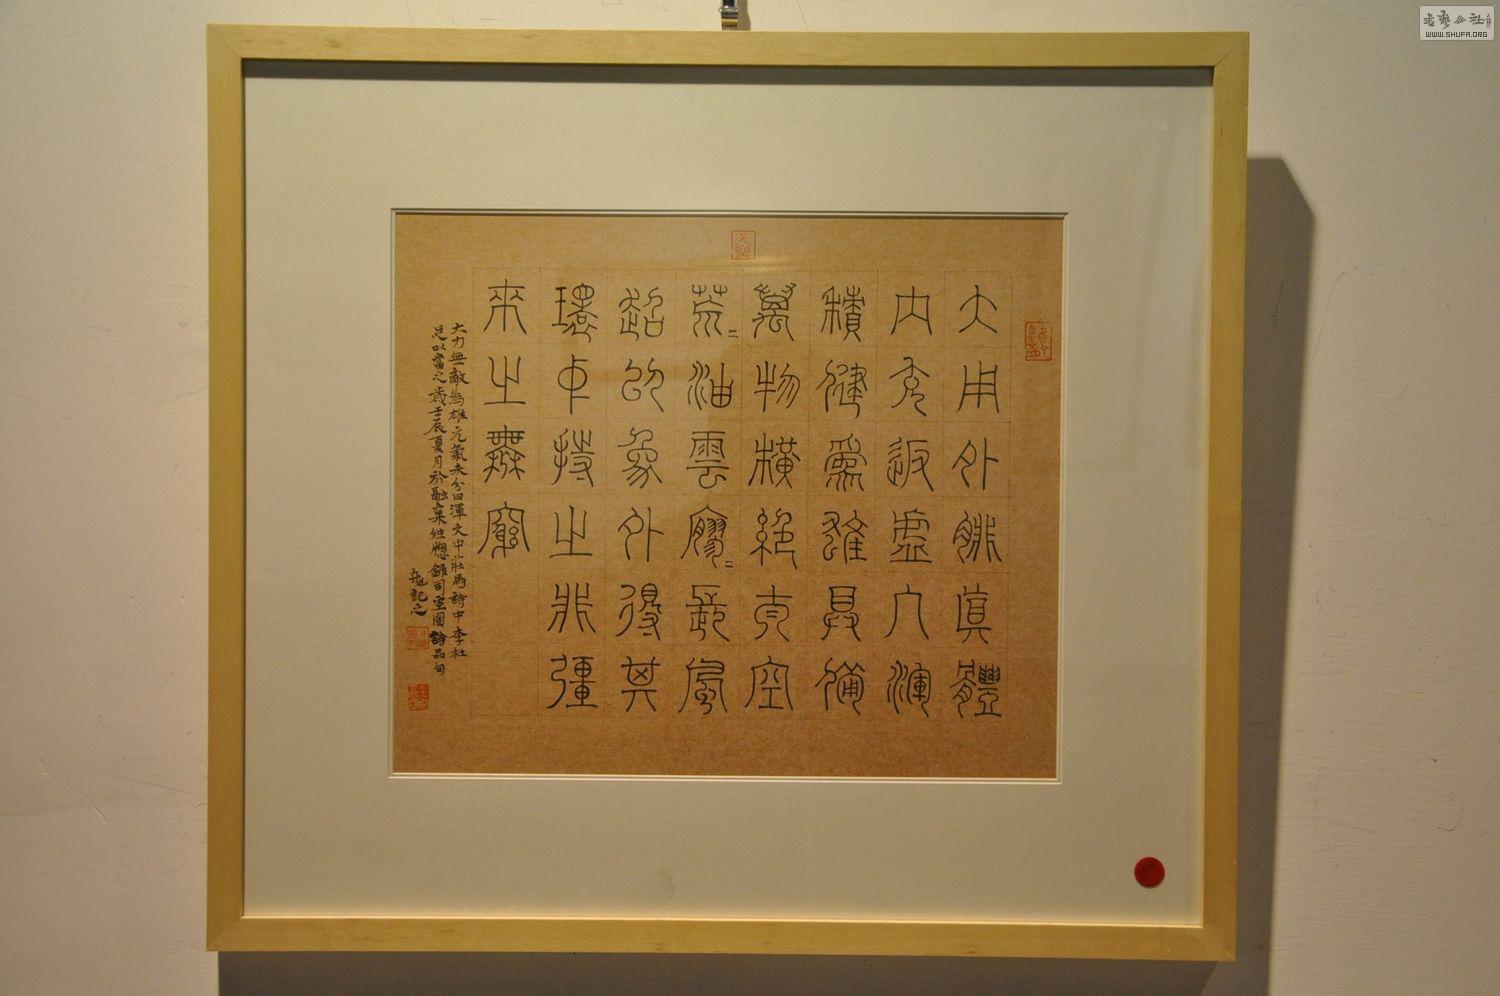 大用外腓真體
內充返虛入渾
積健為雄具備
萬物橫絕太空
荒〻油雲寥〻長風
超以象外得其
環中持之非彊
來之無窮
大力無敵為雄元氣未分曰渾文中莊馬詩中李杜
足以當之歲壬辰夏月於融錄司空圖詩品句
記之
書藝公社
WWW.SHUFA.ORG